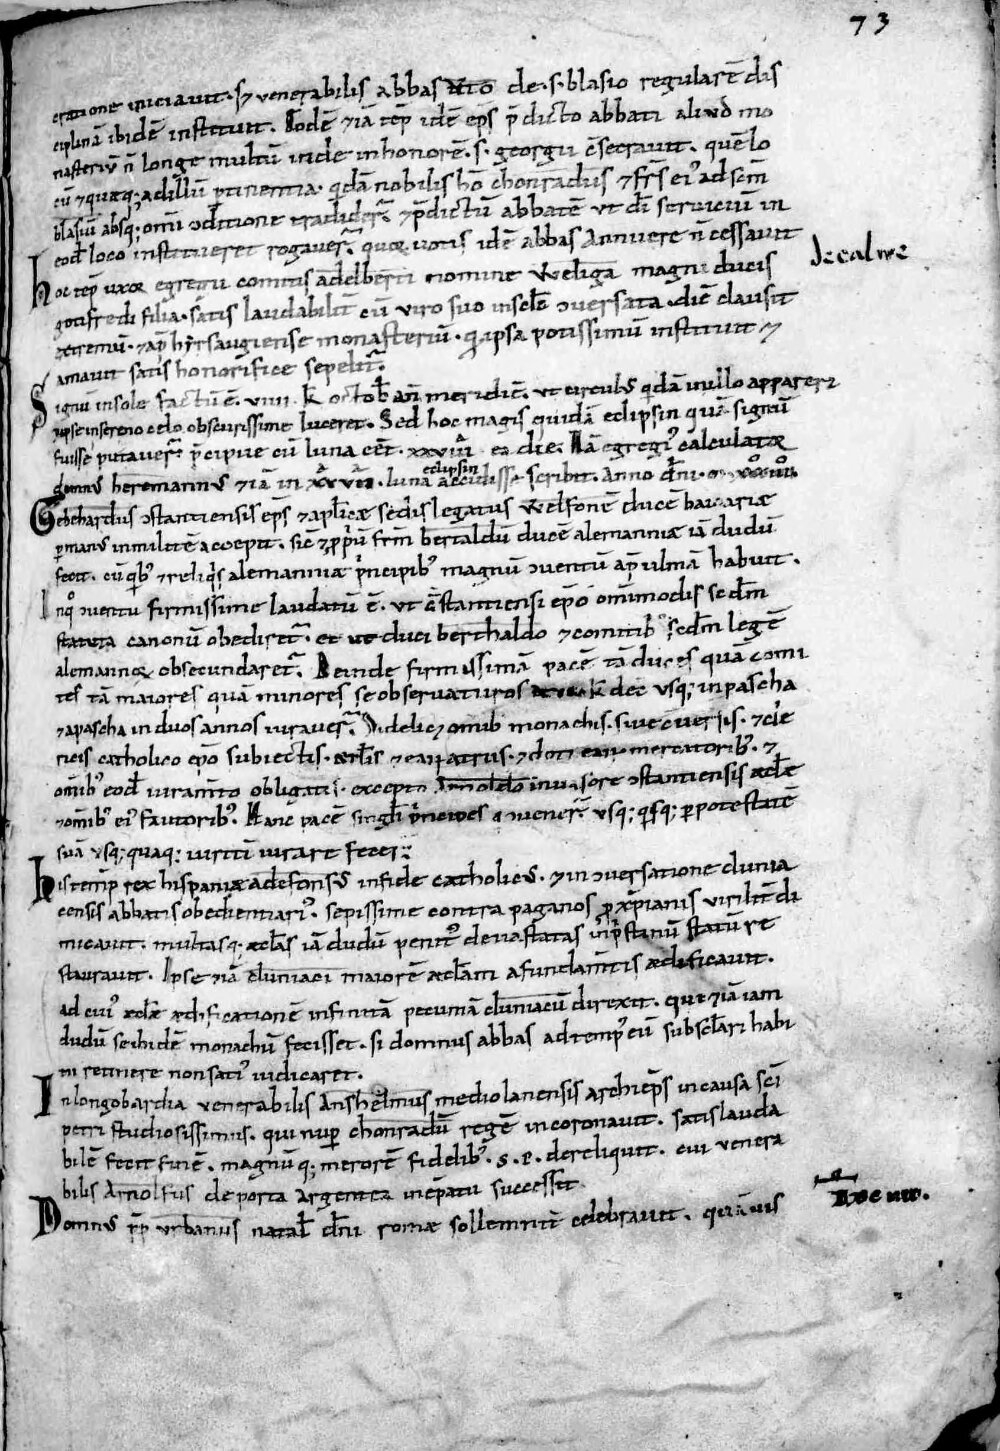 73
eratione iniciavit. Sȝ venerabilis abbas Ꝟto de. s. blasio regularē dis
ciplinā ibidē instituit. Eodē &iā tēp idē ep̄s p̄dicto abbati aliud mo
nasteriū ñ longe multū inde in honorē. s. georgii ɔ̄secravit. quē lo
cū & quæq; ad illū ptinentia. qidā nobilis hō chŏnradus & frēs ei' ad scm̄
blasiū absq; omī ɔditione tradider̄. & p̄dictū abbatē ut dī serviciū in
eod̄ loco institueret rogaver̄. quoꝝ votis idē abbas annuere ñ cessavit
hoc tēp uxor egregii comitis adelberti nomine Weliga magni ducis
gotifredi filia. satis laudabilit̄ cū viro suo in sclō ɔversata. diē clausit
extremū. & ap̄ hyrsaugiense monasteriū. qd ipsa potissimū instituit &
amavit satis honorifice sepelit̄.
Signū in sole factū ē. viiii. k̄ octob̄ an̄ meridiē. ut circul' qidā in illo appareret
ipse in sereno celo obscurissime luceret. Sed hoc magis quidā eclipsin quā signū
fuisse putaver̄. p̄cipue cū luna ēēt. xxviii. ea die. Nā egregi' calculator
domn' heremann' &iā in luna eclipsin accidisse scribit. Anno dn̄i.
Gebehardus ɔstantiensis ep̄s & aplicæ sedis legatus Welfonē ducē bavvariæ
p man' in militē accepit. sic & p̄priū frm̄ bertaldū ducē alemanniæ iā dudū
fecit. cū qib' & reliqis alemanniæ p̄ncipib' magnū ɔventū ap̄ ulmā habuit.
In qo ɔventu firmissime laudatū ē. ut ɔ̄stantiensi ep̄o om̄imodis scd̄m
statuta canonū obediret̄. et ut duci berthaldo & comitib' scd̄m legē
alemannoꝝ obsecundaret̄. Deinde firmissimā pacē tā duces quā comi
tes tā maiores quā minores se observaturos k̄ dec usq; in pascha
& a pascha in duos annos iuraver̄. Videlicȝ omib' monachis. sive ɔversis. & cle
ricis catholico ep̄o subiectis. æccl̄is & earū atriis. & dotib' earū. mercatorib'. &
om̄ib' eod̄ iuram̄to obligatis. excepto Arnoldo invasore ɔstantiensis æccl̄æ
& omib' ei' fautorib'. Hanc pacē singl̄i p̄ncipes ɔvener̄. usq; qosq; p potestatē
suā usq; quaq; viritī iurare fecer̄.
his tēp rex hispaniæ Adefons' in fide catholic'. & in ɔversatione clunia
censis abbatis obedientiari'. sepissime contra paganos p̄ xp̄ianis virilit̄ di
micavit. multasq; æccl̄as iā dudū penit' devastatas in p̄stinū statū re
stauravit. Ipse &iā cluniaci maiorē æccl̄am a fundam̄tis ædificavit.
ad cui' æccl̄æ ædificationē infinitā pecuniā cluniacū direxit. qui &iā iam
dudū se ibidē monachū fecisset. si domnus abbas ad temp' eū sub sclari habi
tu retinere non sati' iudicaret.
In longobardia venerabilis Anshelmus mediolanensis archiep̄s in causa sc̄i
petri studiosissimus. qui nup chŏnradū regē incoronavit. satis lauda
bilē fecit finē. magnūq; merorē fidelib'. s. p. dereliquit. cui venera
bilis Arnolfus de porta argentea in ep̄atu successit.
Domn' p̄p̄ urbanus natale dn̄i romæ sollemnit̄ celebravit. quāvis
de calwe